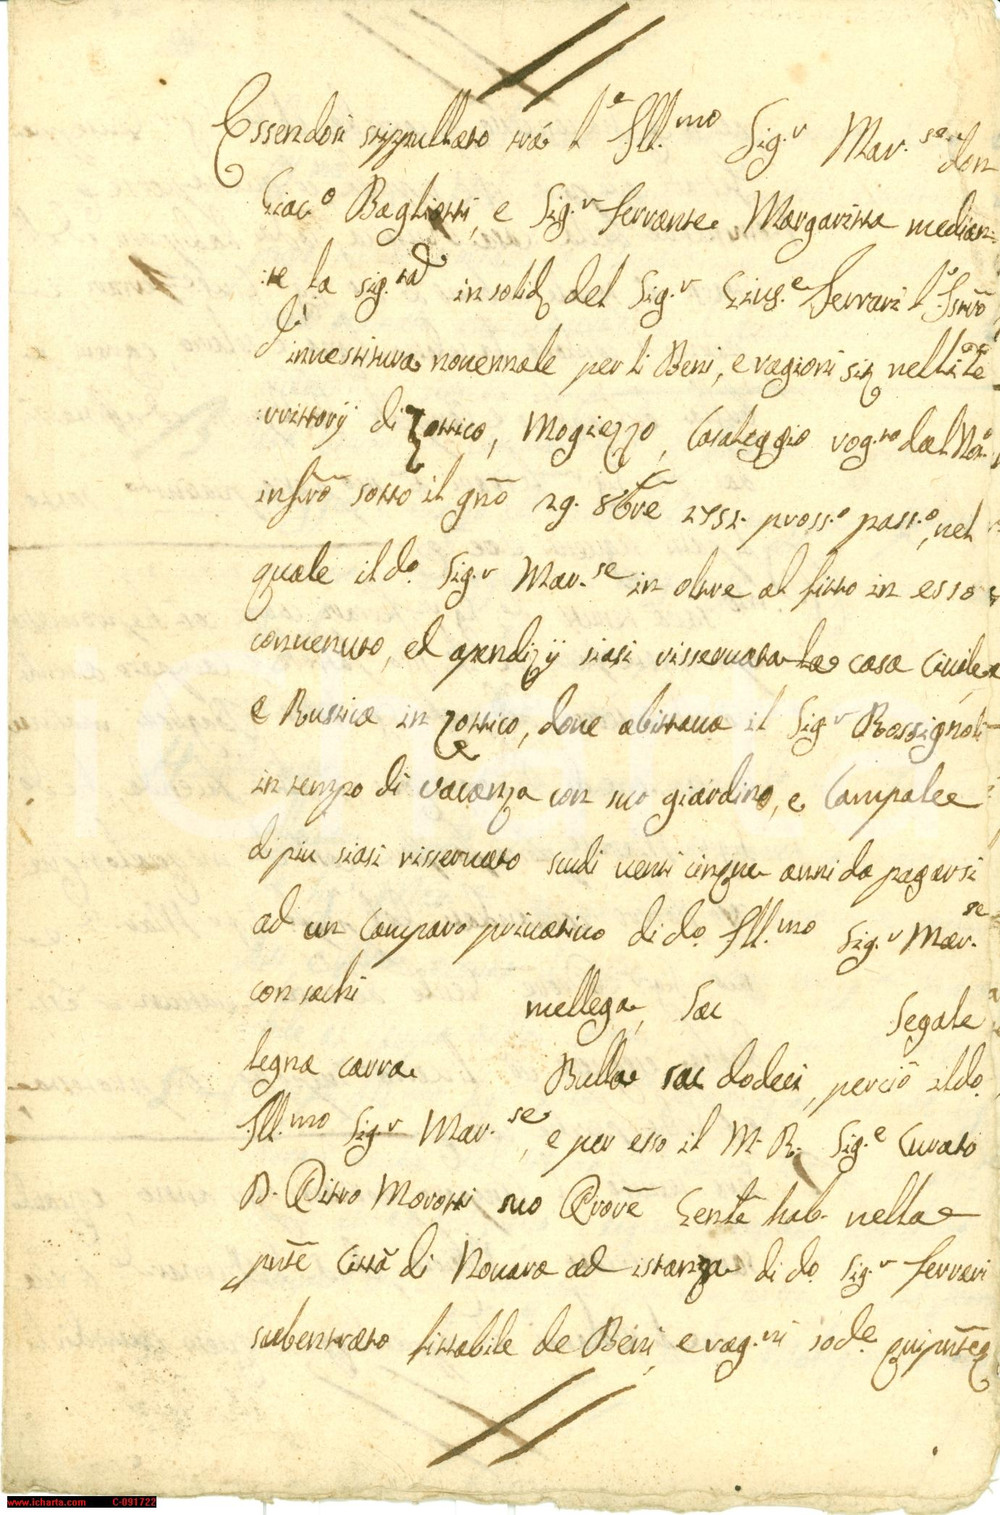 Essendosi stippullato trà l'e Ill.mo Sig.r Mar.se don
Giac.o Bagliotti, e Sig.r Ferrante Margaritta median=
:te la sig.tà in solid del Sig.r Gius.e Ferrari l'Istro
d'inuestitura nouennale per li Beni, e ragioni siti nelli te
:rrittorij di Zottico, Mogiezzo, Casaleggio rog.to dal No.o
infr̃o sotto il gno 29. 8bre 1752. pross.o pass.o, nel
quale il do. Sig.r Mar.se in oltre al fitto in esso
conuenuto, ed apendizij siasi risseruata la casa Ciuile
e Rustica in Zottico, doue abittaua il Sig.r Rossignoli
in tempo di vacanza con suo giardino, e Campalee
di piu siasi risseruato scudi uenti cinque anni da pagarsi
ad un Camparo priuatiuo di do. Ill.mo Sig.r Mar.se
con sachi mellega, Sac Segale
legna carra Bulla sac dodeci, perciò il do.
Ill.mo Sig.r Mar.se, e per esso il M. R. Sig.e Curato
D. Pitro Morotti suo Prore Gente hab. nella
pnte Città di Nouara ad istanza di do. Sig.r Ferrari
subentrato fittabile de Beni, e rag.ni sode.
www.icharta.com C-091722